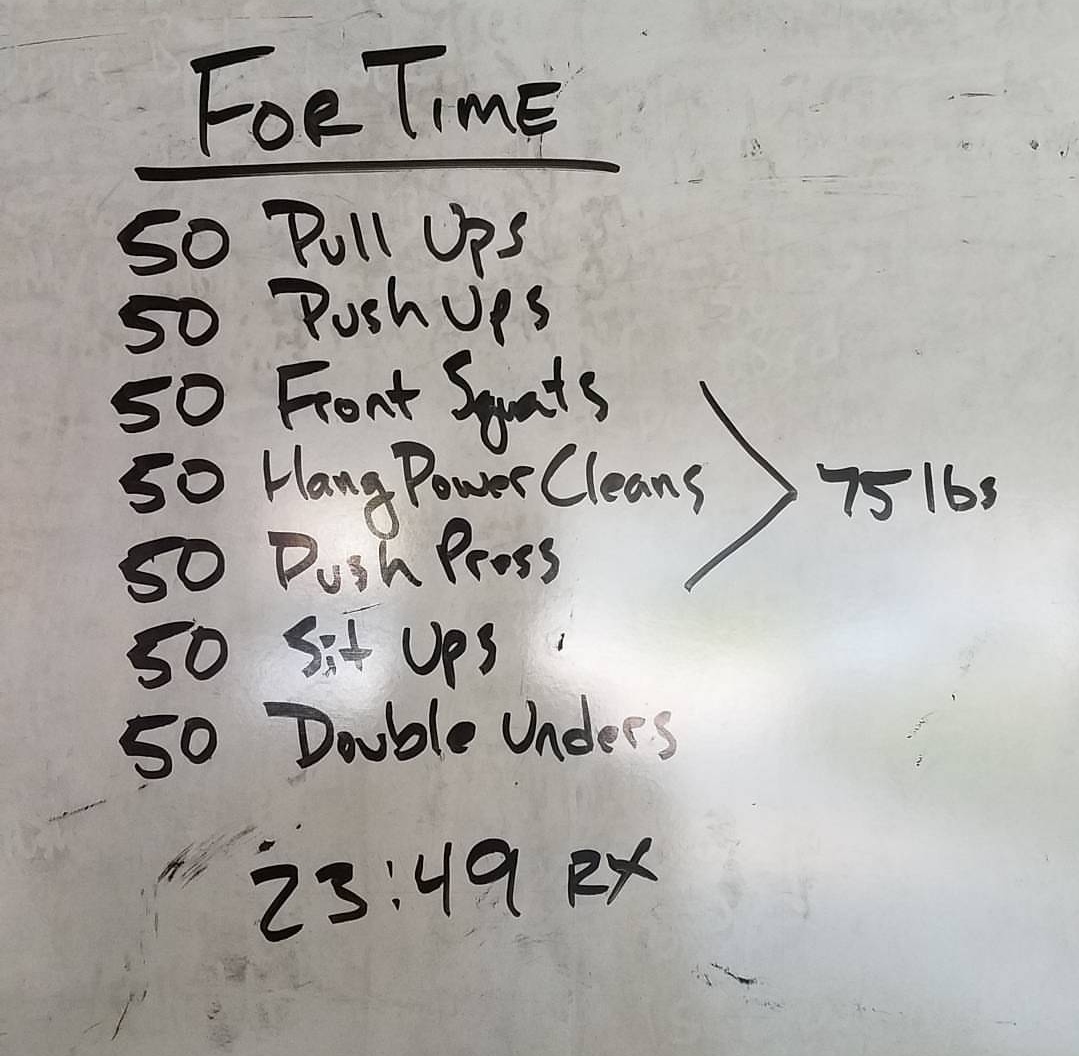 FOR TIME
50 Pull Ups
50 Push Ups
50 Front Squats
50 Hang Power Cleans 75 lbs
50 Push Press
50 Sit Ups
50 Double Unders
23:49 RX